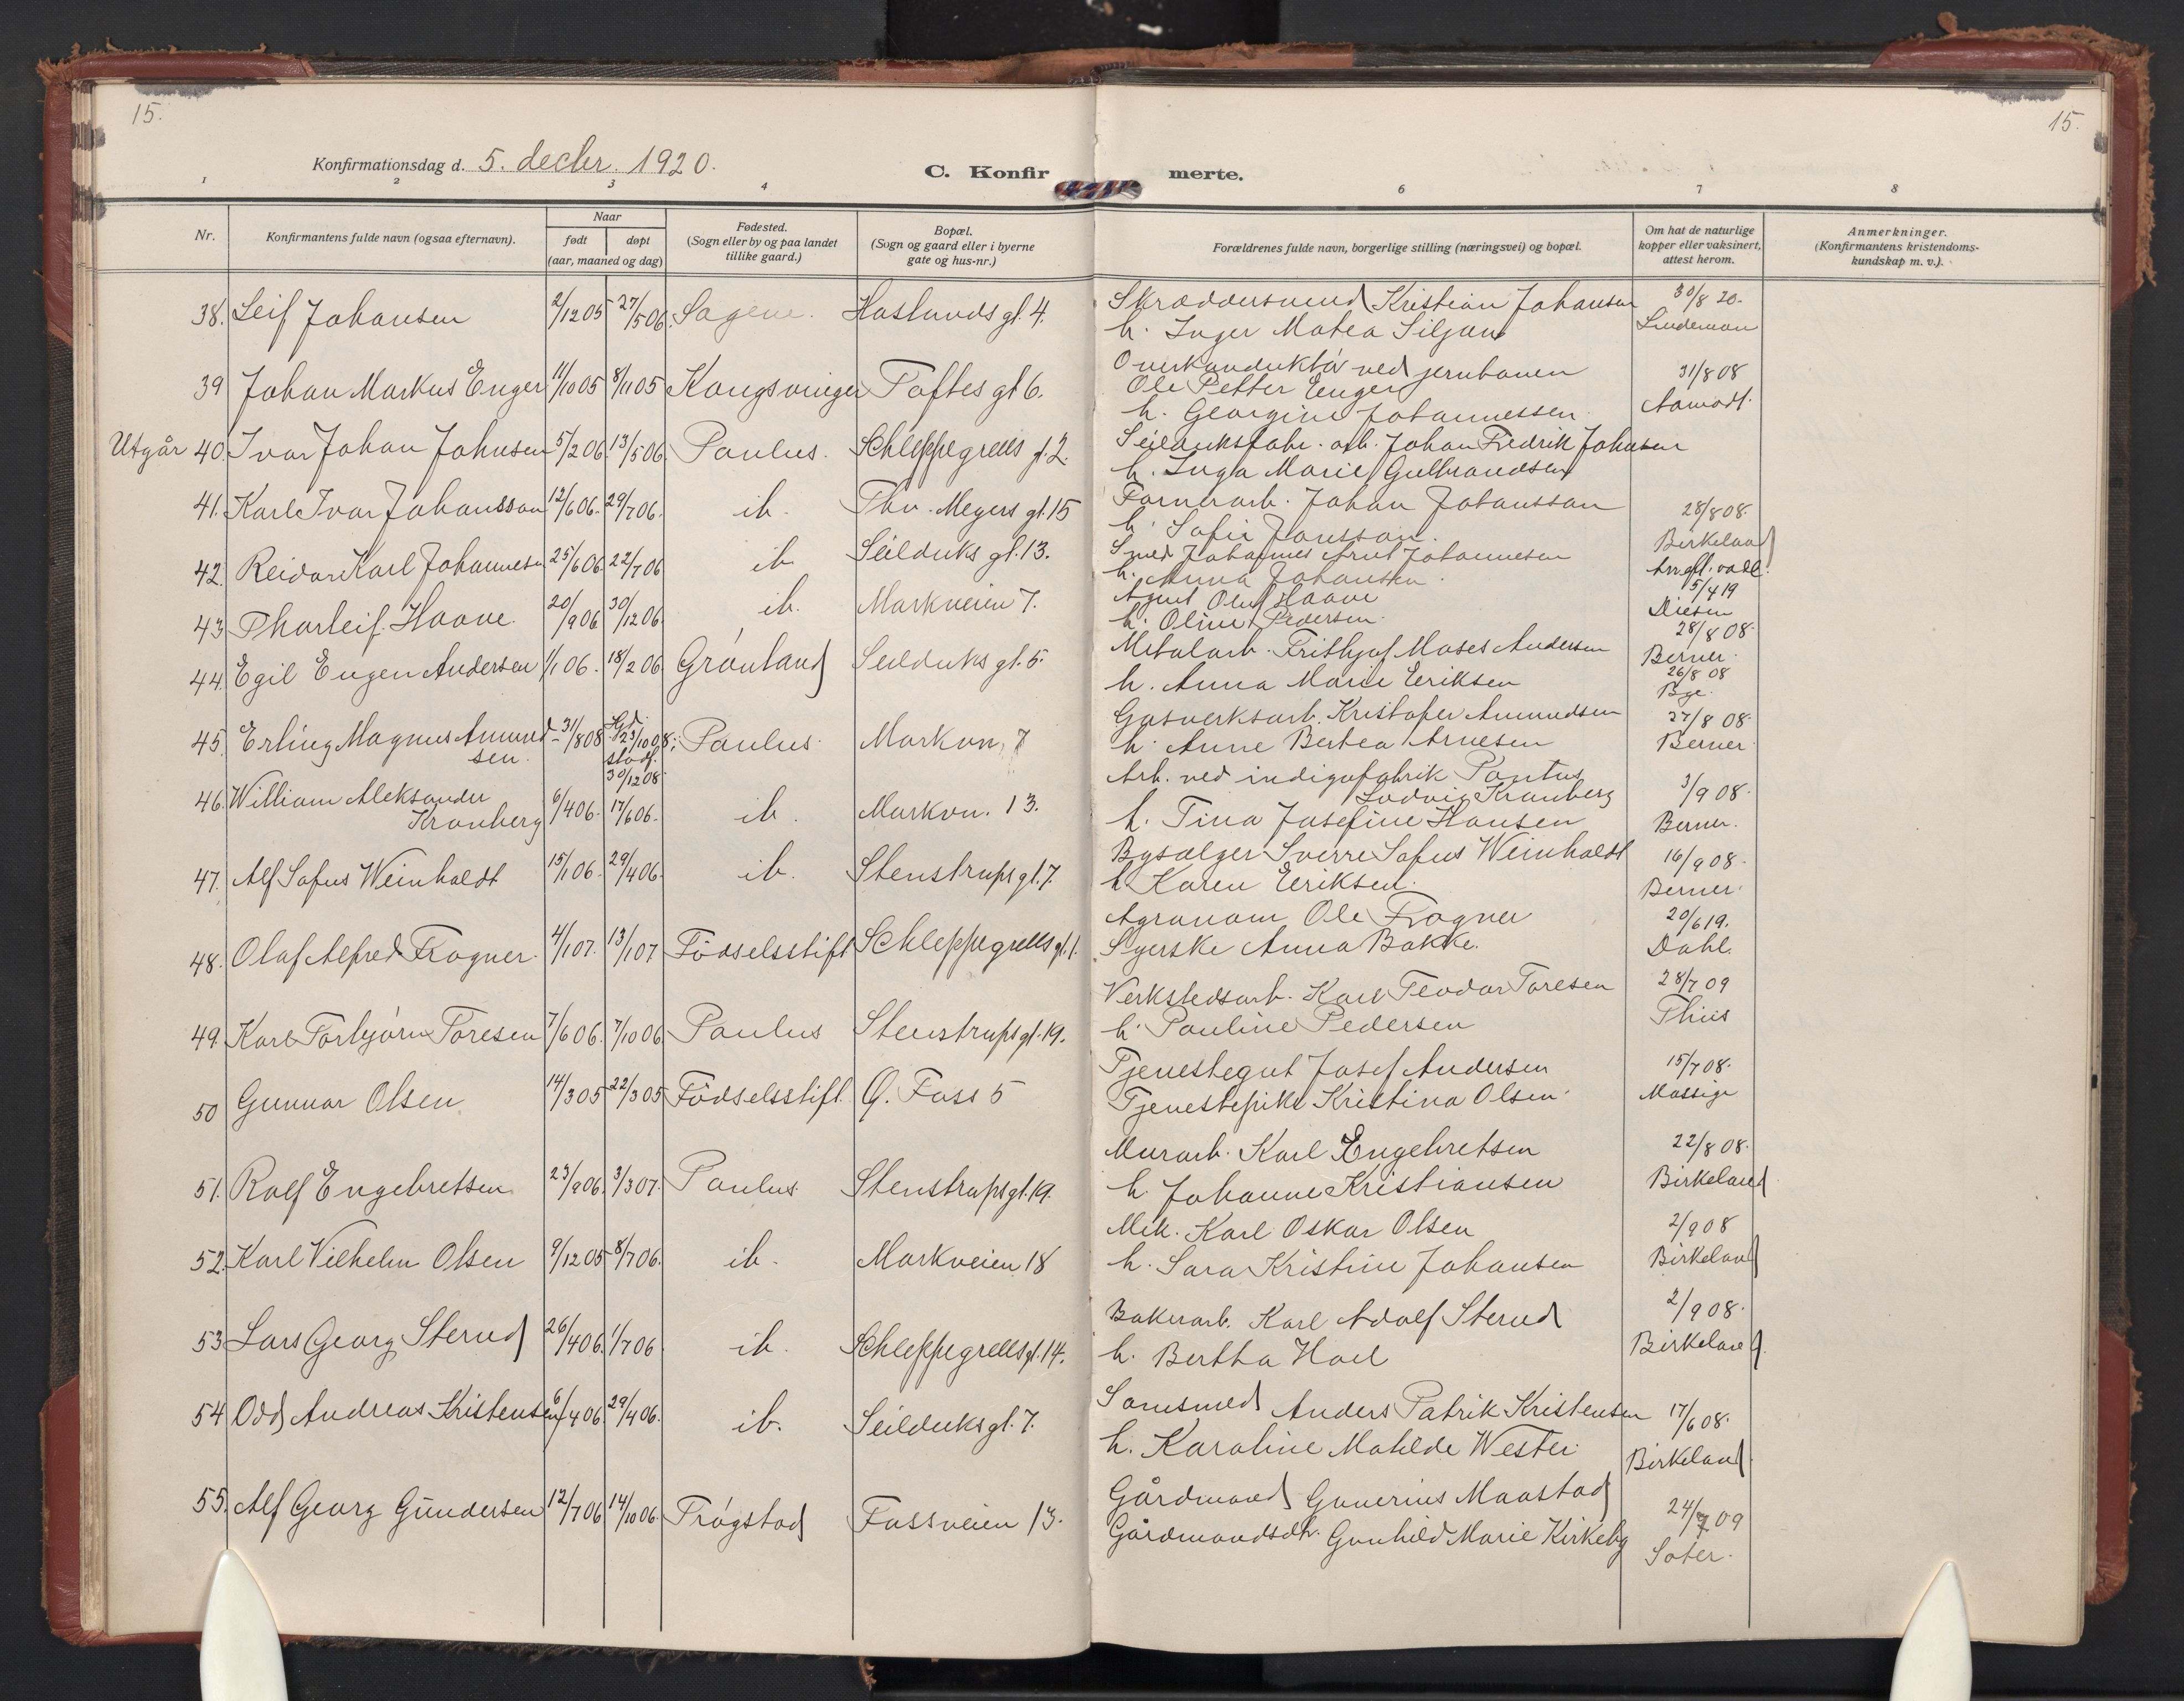 15.
15.
Konfirmationsdag d. 5. decbr. 1920.
C. Konfirmerte.
1 2 3 4 6 7 8
Nr.
Konfirmantens fulde navn (ogsaa efternavn).
Naar
født døpt
(aar, maaned og dag)
Fødested.
(Sogn eller by og paa landet
tillike gaard.)
Bopæl.
(Sogn og gaard eller i byerne
gate og hus-nr.)
Forældrenes fulde navn, borgerlige stilling (næringsvei) og bopæl.
Om hat de naturlige
kopper eller vaksinert,
attest herom.
Anmerkninger.
(Konfirmantens kristendoms-
kundskap m. v.).
38. Leif Johansen 2/12 05 27/5 06. Sagene. Haslunds gt. 4. Skræddersvend Kristian Johansen 30/8 20.
h. Inger Matea Siljan Lindeman
39 Johan Markus Enger 11/10 05 8/11 05 Kongsvinger Toftes gt 6. Overkonduktör ved jernbanen 31/8 08
Ole Petter Enger
h. Georgine Johannessen. Aamodt.
Utgår 40. Ivar Johan Johnsen 5/2 06. 13/5 06. Paulus. Schleppegrells gt. 2. Seilduksfabr. arb. Johan Fredrik Johnsen
h. Inga Marie Gulbrandsen
41. Karl Ivar Johansson 12/6 06. 29/7 06. ib. Thv. Meyers gt. 15 Formerarb. Johan Johansson 28/8 08.
h. Sofie Jonsson. Birkeland
42. Reidar Karl Johannesen 25/6 06 22/7 06 ib. Seilduks gt. 13. Smed Johannes Arnt Johannesen
h. Anna Johansen.
43 Thorleif Haave. 20/9 06 30/12 06. ib. Markveien 7. Agent Oluf Haave 5/4 19
h. Oline Pedersen. Diesen
44. Egil Eugen Andersen 1/1 06. 18/2 06. Grönland Seilduks gt. 5. Metalarb. Frithjof Moses Andersen 28/8 08.
Berner.
h. Anna Marie Eriksen 26/8 08
Bye.
45. Erling Magnus Amund- 31/8 08 Hjd. 23/10 08; Paulus. Markvn. 7 Gasverksarb. Kristofer Amundsen 27/8 08.
sen. stadf. 30/12 08. h. Anne Bertea Arnesen Berner.
46. William Aleksander 6/4 06. 17/6 06. ib. Markvn. 13. Arb. ved indigofabrik Pontus 3/9 08.
Kronberg Ludvig Kronberg
h. Tina Josefine Hansen Berner.
47. Alf Sofus Weinholdt 15/1 06. 29/4 06. ib. Stenstrups gt. 7. Bysælger Sverre Sofus Weinholdt 16/9 08.
h. Karen Eriksen. Berner.
48. Olaf Alfred Frogner. 4/1 07. 13/1 07 Födselsstift. Schleppegrells gt. 1. Agronom Ole Frogner 20/6 19.
Syerske Anna Bakke. Dahl.
49. Karl Torbjörn Toresen 7/6 06. 7/10 06 Paulus Stenstrups gt. 19. Verkstedsarb. Karl Teodor Toresen 28/7 09
h. Pauline Pedersen Thiis
50 Gunnar Olsen. 14/3 05 22/3 05 Födselsstift. Ö. Foss 5 Tjenestegut Josef Andersen 15/7 08.
Tjenestepike Kristina Olsen. Massige
51. Rolf Engebretsen 23/9 06. 3/3 07. Paulus. Stenstrups gt. 19. Murarb. Karl Engebretsen 22/8 08.
h. Johanne Kristiansen Birkeland
52. Karl Vilhelm Olsen 9/12 05 8/7 06. ib. Markveien 18 Mek. Karl Oskar Olsen 2/9 08
h. Sara Kristine Johansen Birkeland
53 Lars Georg Sterud 26/4 06. 1/7 06. ib. Schleppegrells gt. 14. Bakerarb. Karl Adolf Sterud 2/9 08.
h. Bertha Hoel Birkeland.
54 Odd Andreas Kristensen 6/4 06. 29/4 06. ib. Seilduks gt. 7. Anders Patrik Kristensen 17/6 08.
h. Karoline Matilde Westli Birkeland.
55. Alf Georg Gundersen 12/7 06 14/10 06. Trögstad Fossveien 13. Gårdmand Gunerius Maastad 24/7 09
Gårdmandsdtr. Gunhild Marie Kirkeby